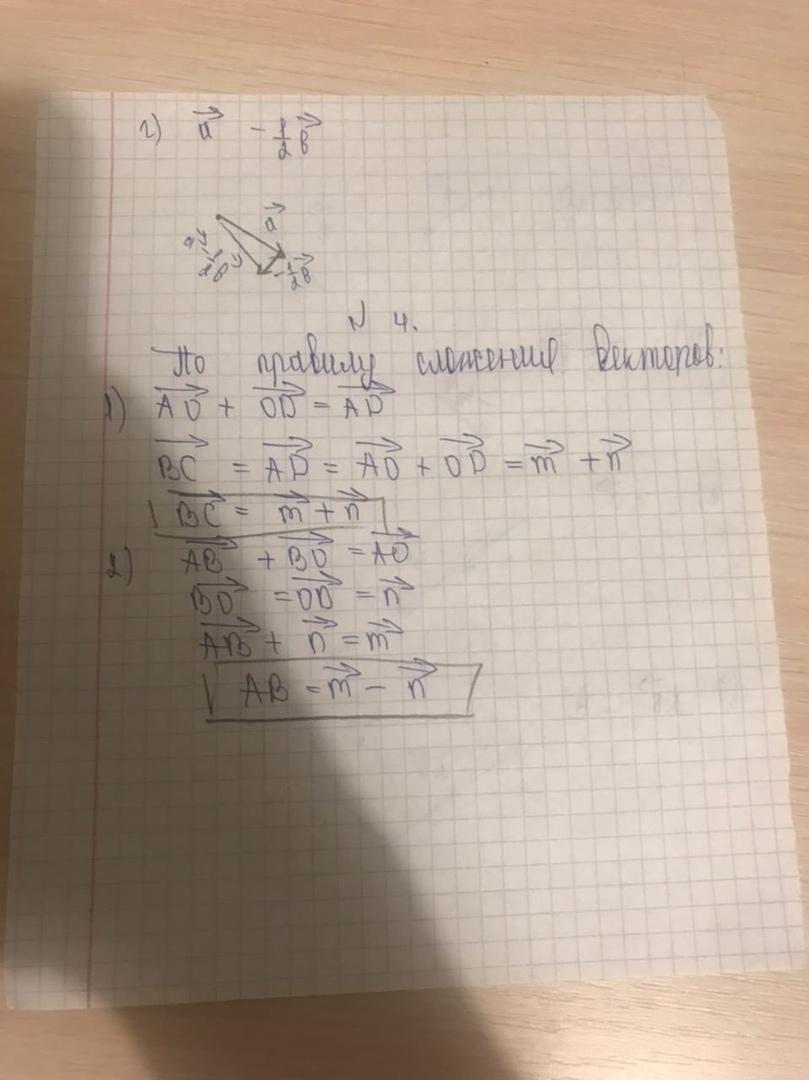 г) a⃗ - 1/2 b⃗
a⃗
a⃗ - 1/2 b⃗
- 1/2 b⃗
N 4.
По правилу сложения векторов:
1) AO⃗ + OD⃗ = AD⃗
BC⃗ = AD⃗ = AO⃗ + OD⃗ = m⃗ + n⃗
BC⃗ = m⃗ + n⃗
2) AB⃗ + BO⃗ = AO⃗
BO⃗ = OD⃗ = n⃗
AB⃗ + n⃗ = m⃗
AB = m⃗ - n⃗